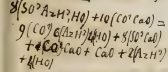 8(SO³AzH²,HO) + 10(CO²CaO) =
9(CO²,AzH³,HO) + 8(SO³CaO)
+ CO²CaO + CaO + 2(AzH³)
+ (HO)